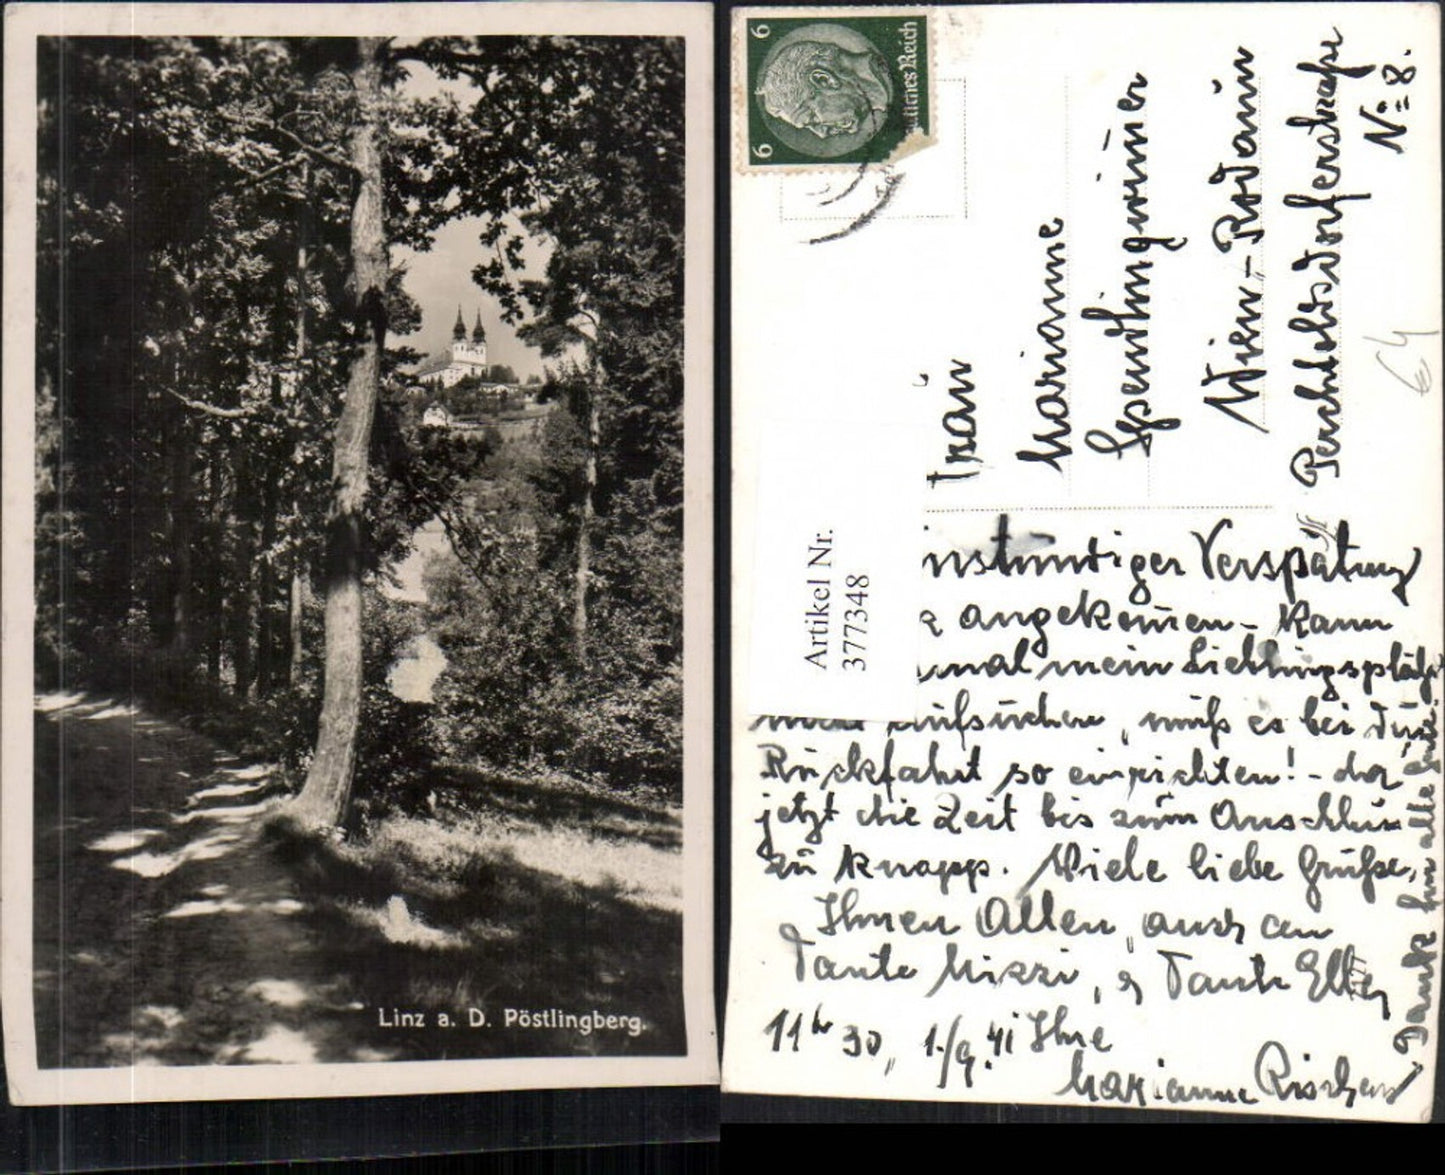 Linz a. D. Pöstlingberg.
6
6
Deutsches Reich
Frau
Marianne
Wien-Rodaun
Perchtoldsdorferstraße
No 8.
Artikel Nr.
377348
instündiger Verspätung
angekommen - Kann
mal mein Lieblingsplätz
aufsuchen, muß es bei
Rückfahrt so einrichten! - da
jetzt die Zeit bis zum Anschluss
zu knapp. Viele liebe Grüße,
Ihnen Allen, auch an
Tante Mizzi, & Tante Elly
11h 30, 1./9. 41 Ihre
Marianne
Dank für alle